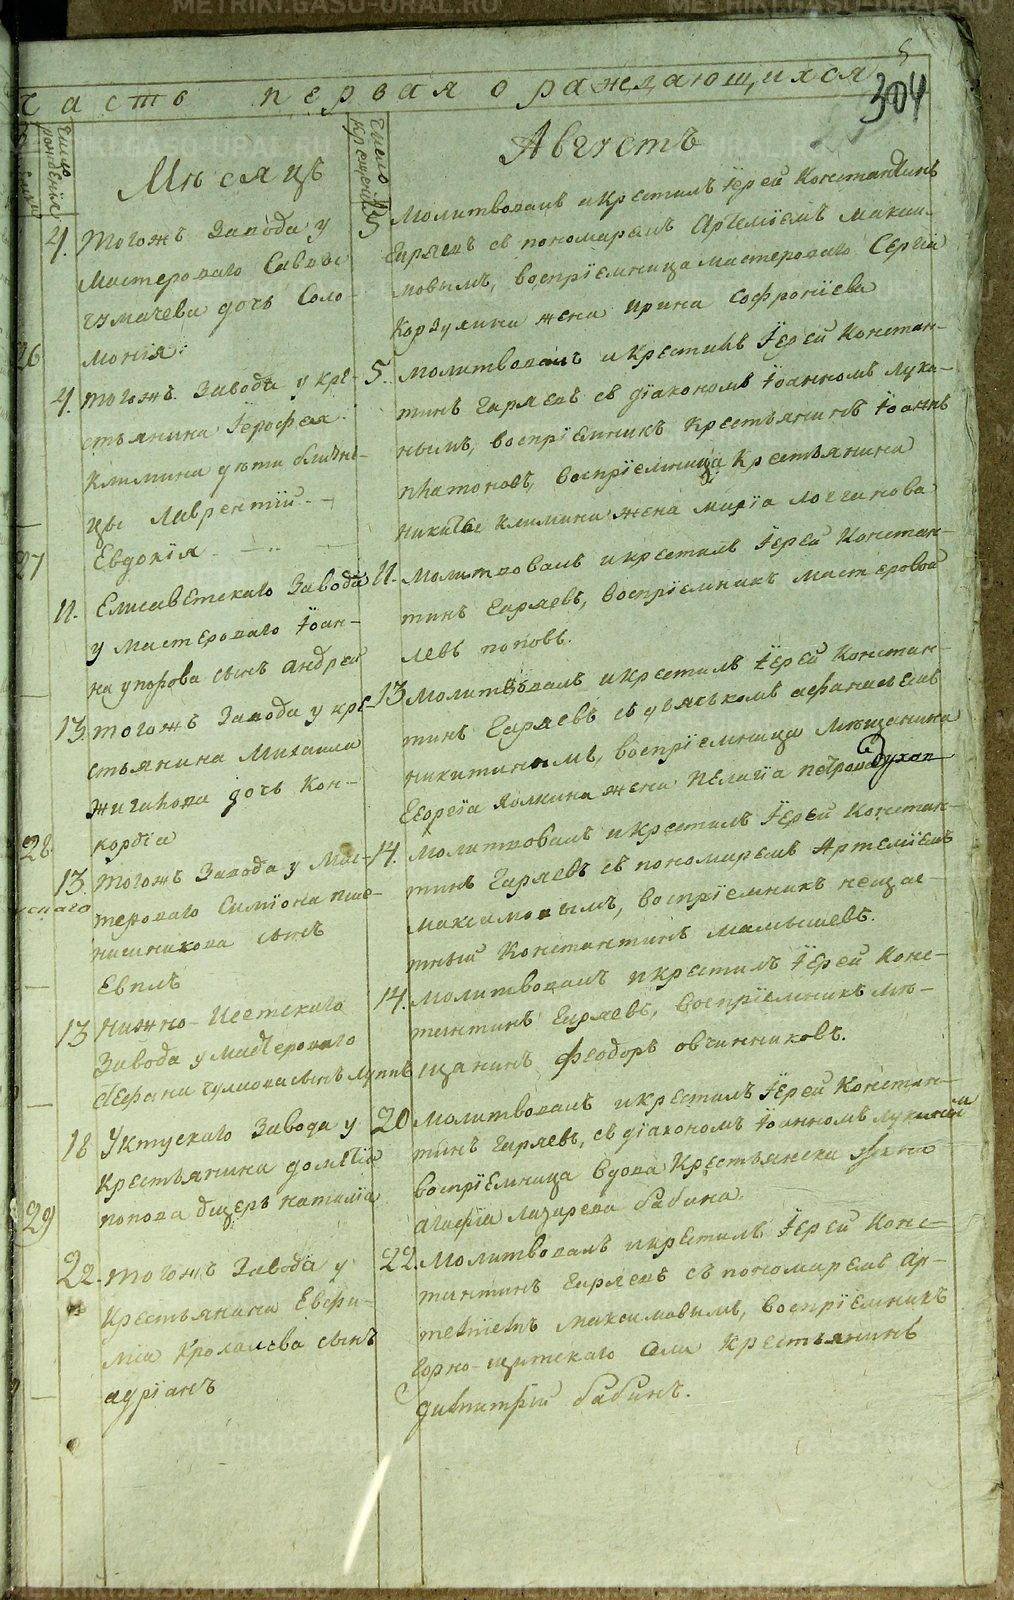 METRIKI.GASO-URAL.RU
5
304
Часть первая о раждающихся
Число рожденія
Мѣсяцъ
Число крещенія
Августъ
4.
Тогожъ Завода у
Мастероваго Саввы
Чумачева дочь Соло-
монія.
5
Молитвовалъ и крестилъ Іерей Константинъ
Гиряевъ съ пономаремъ Артеміемъ Макси-
мовымъ, воспріемница мастероваго Сергія
Корзухина жена Ирина Софроніева
26
4.
Тогожъ Завода у кре-
стьянина Іерофея
Климина дѣти близне-
цы Лаврентій
Евдокія
5.
Молитвовалъ и крестилъ Іерей Констан-
тинъ Гиряевъ съ діакономъ Іоанномъ Луки-
нымъ, воспріемникъ Крестьянинъ Іоаннъ
Платоновъ, воспріемница Крестьянина
Никиты Климина жена Марія Логгинова
27
11.
Елисаветскаго Завода
у мастероваго Іоан-
на Упорова сынъ Андрей
11.
Молитвовалъ и крестилъ Іерей Констан-
тинъ Гиряевъ, воспріемникъ мастеровой
Левъ Поповъ.
13.
Тогожъ Завода у кре-
стьянина Михаила
Жиганова дочь Кон-
кордіа
13
Молитвовалъ и крестилъ Іерей Констан-
тинъ Гиряевъ съ дьячькомъ Афанасіемъ
Никитинымъ, воспріемница Мѣщанина
Георгіа Яолкина жена Пелагіа Петрова
28
13.
Тогожъ Завода у Мас-
тероваго Симіона Пше-
нишникова сынъ
Евплъ
14.
Молитвовалъ и крестилъ Іерей Констан-
тинъ Гиряевъ съ пономаремъ Артеміемъ
Максимовымъ, воспріемникъ
Константинъ Малышевъ.
13
Нижно-Исетскаго
Завода у мастероваго
Стефана сынъ Луппъ
14.
Молитвовалъ и крестилъ Іерей Конс-
тантинъ Гиряевъ, воспріемникъ мѣ-
щанинъ Феодоръ Овчинниковъ.
18
Уктускаго Завода у
Крестьянина Дометіа
Попова дщерь Наталіа
20
Молитвовалъ и крестилъ Іерей Констан-
тинъ Гиряевъ, съ діакономъ Іоанномъ Лукинымъ
воспріемница вдова Крестьянская жена
Агафіа Лазарева Бабина
29
22.
Тогожъ Завода у
Крестьянина Евфи-
міа Кроха сынъ
Адріанъ
22.
Молитвовалъ и крестилъ Іерей Конс-
тантинъ Гиряевъ съ пономаремъ Ар-
теміемъ Максимовымъ, воспріемникъ
Горно-щитскаго села Крестьянинъ
Димитрій Бабинъ.